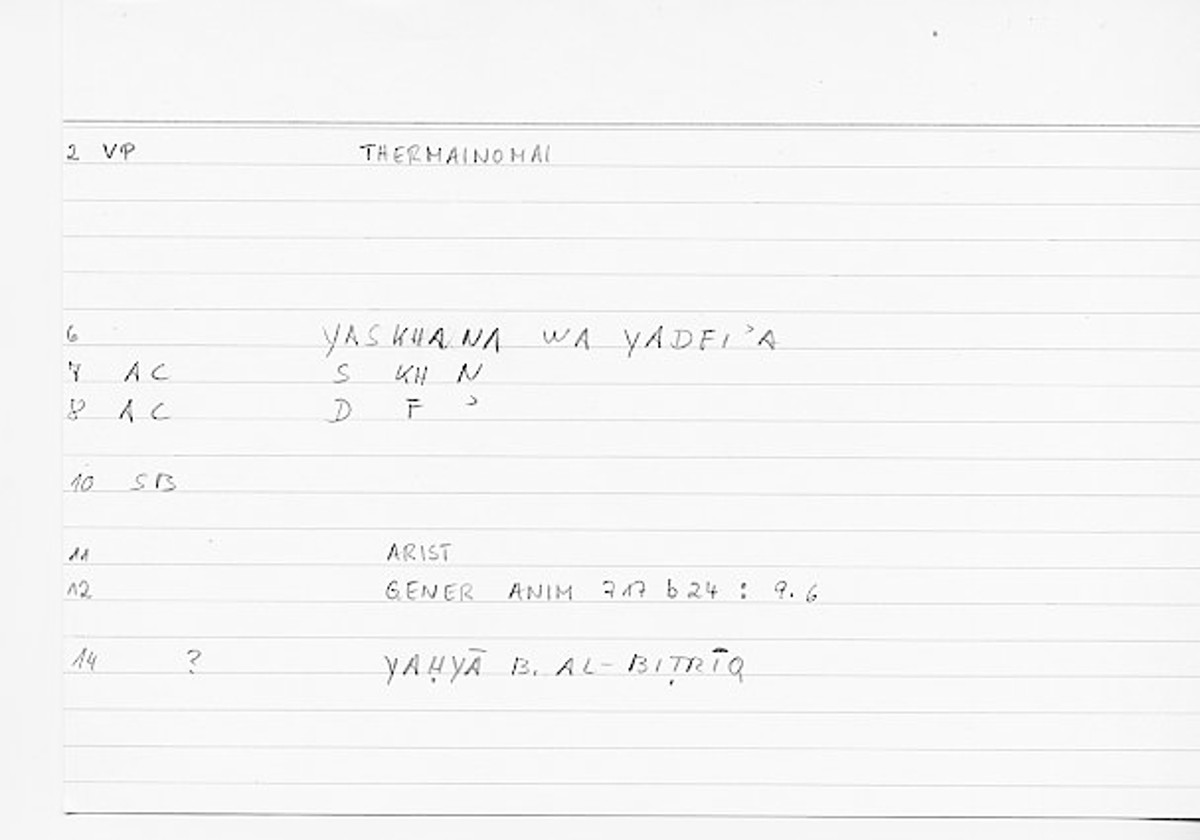 2 VP THERMAINOMAI
6 YASKHANA WA YADFI ʾA
7 AC S KH N
8 AC D F ʾ
10 SB
11 ARIST
12 GENER ANIM 717 b24 : 9.6
14 ? YAḤYĀ B. AL-BIṬRĪQ